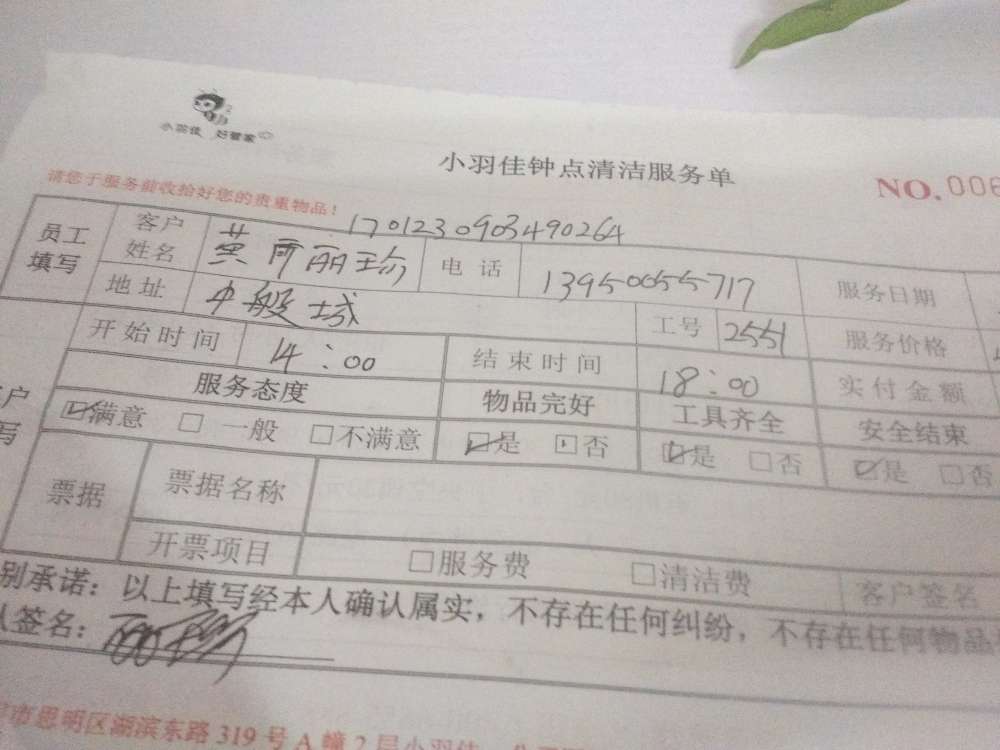 小羽佳 好管家
小羽佳钟点清洁服务单
NO.006
请您于服务前收拾好您的贵重物品！
1701230903490264
员工填写 客户姓名 丽珍 电话 13950055717 服务日期
地址 中般城 工号 2551 服务价格
开始时间 14:00 结束时间 18:00 实付金额
服务态度 物品完好 工具齐全 安全结束
☑满意 □一般 □不满意 ☑是 □否 ☑是 □否 ☑是 □否
票据 票据名称
开票项目 □服务费 □清洁费 客户签名
别承诺：以上填写经本人确认属实，不存在任何纠纷，不存在任何物品
人签名： 丽珍
市思明区湖滨东路319号A幢2层小羽佳